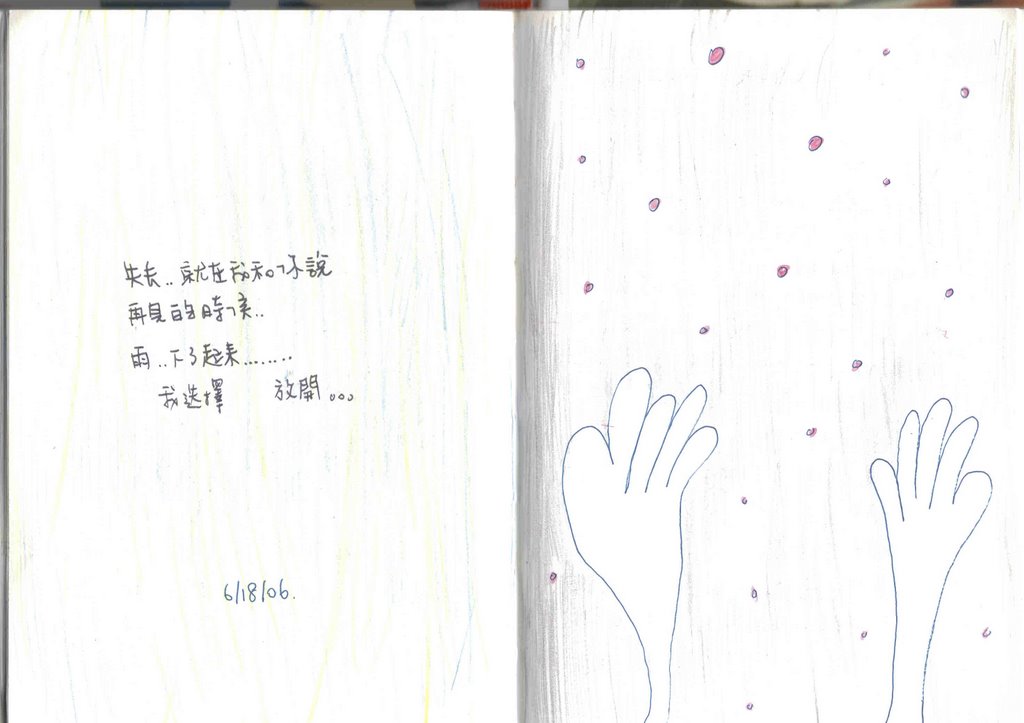 失去..就在我和你說
再見的時候..
雨..下了起來........
我選擇 放開...
6/18/06.